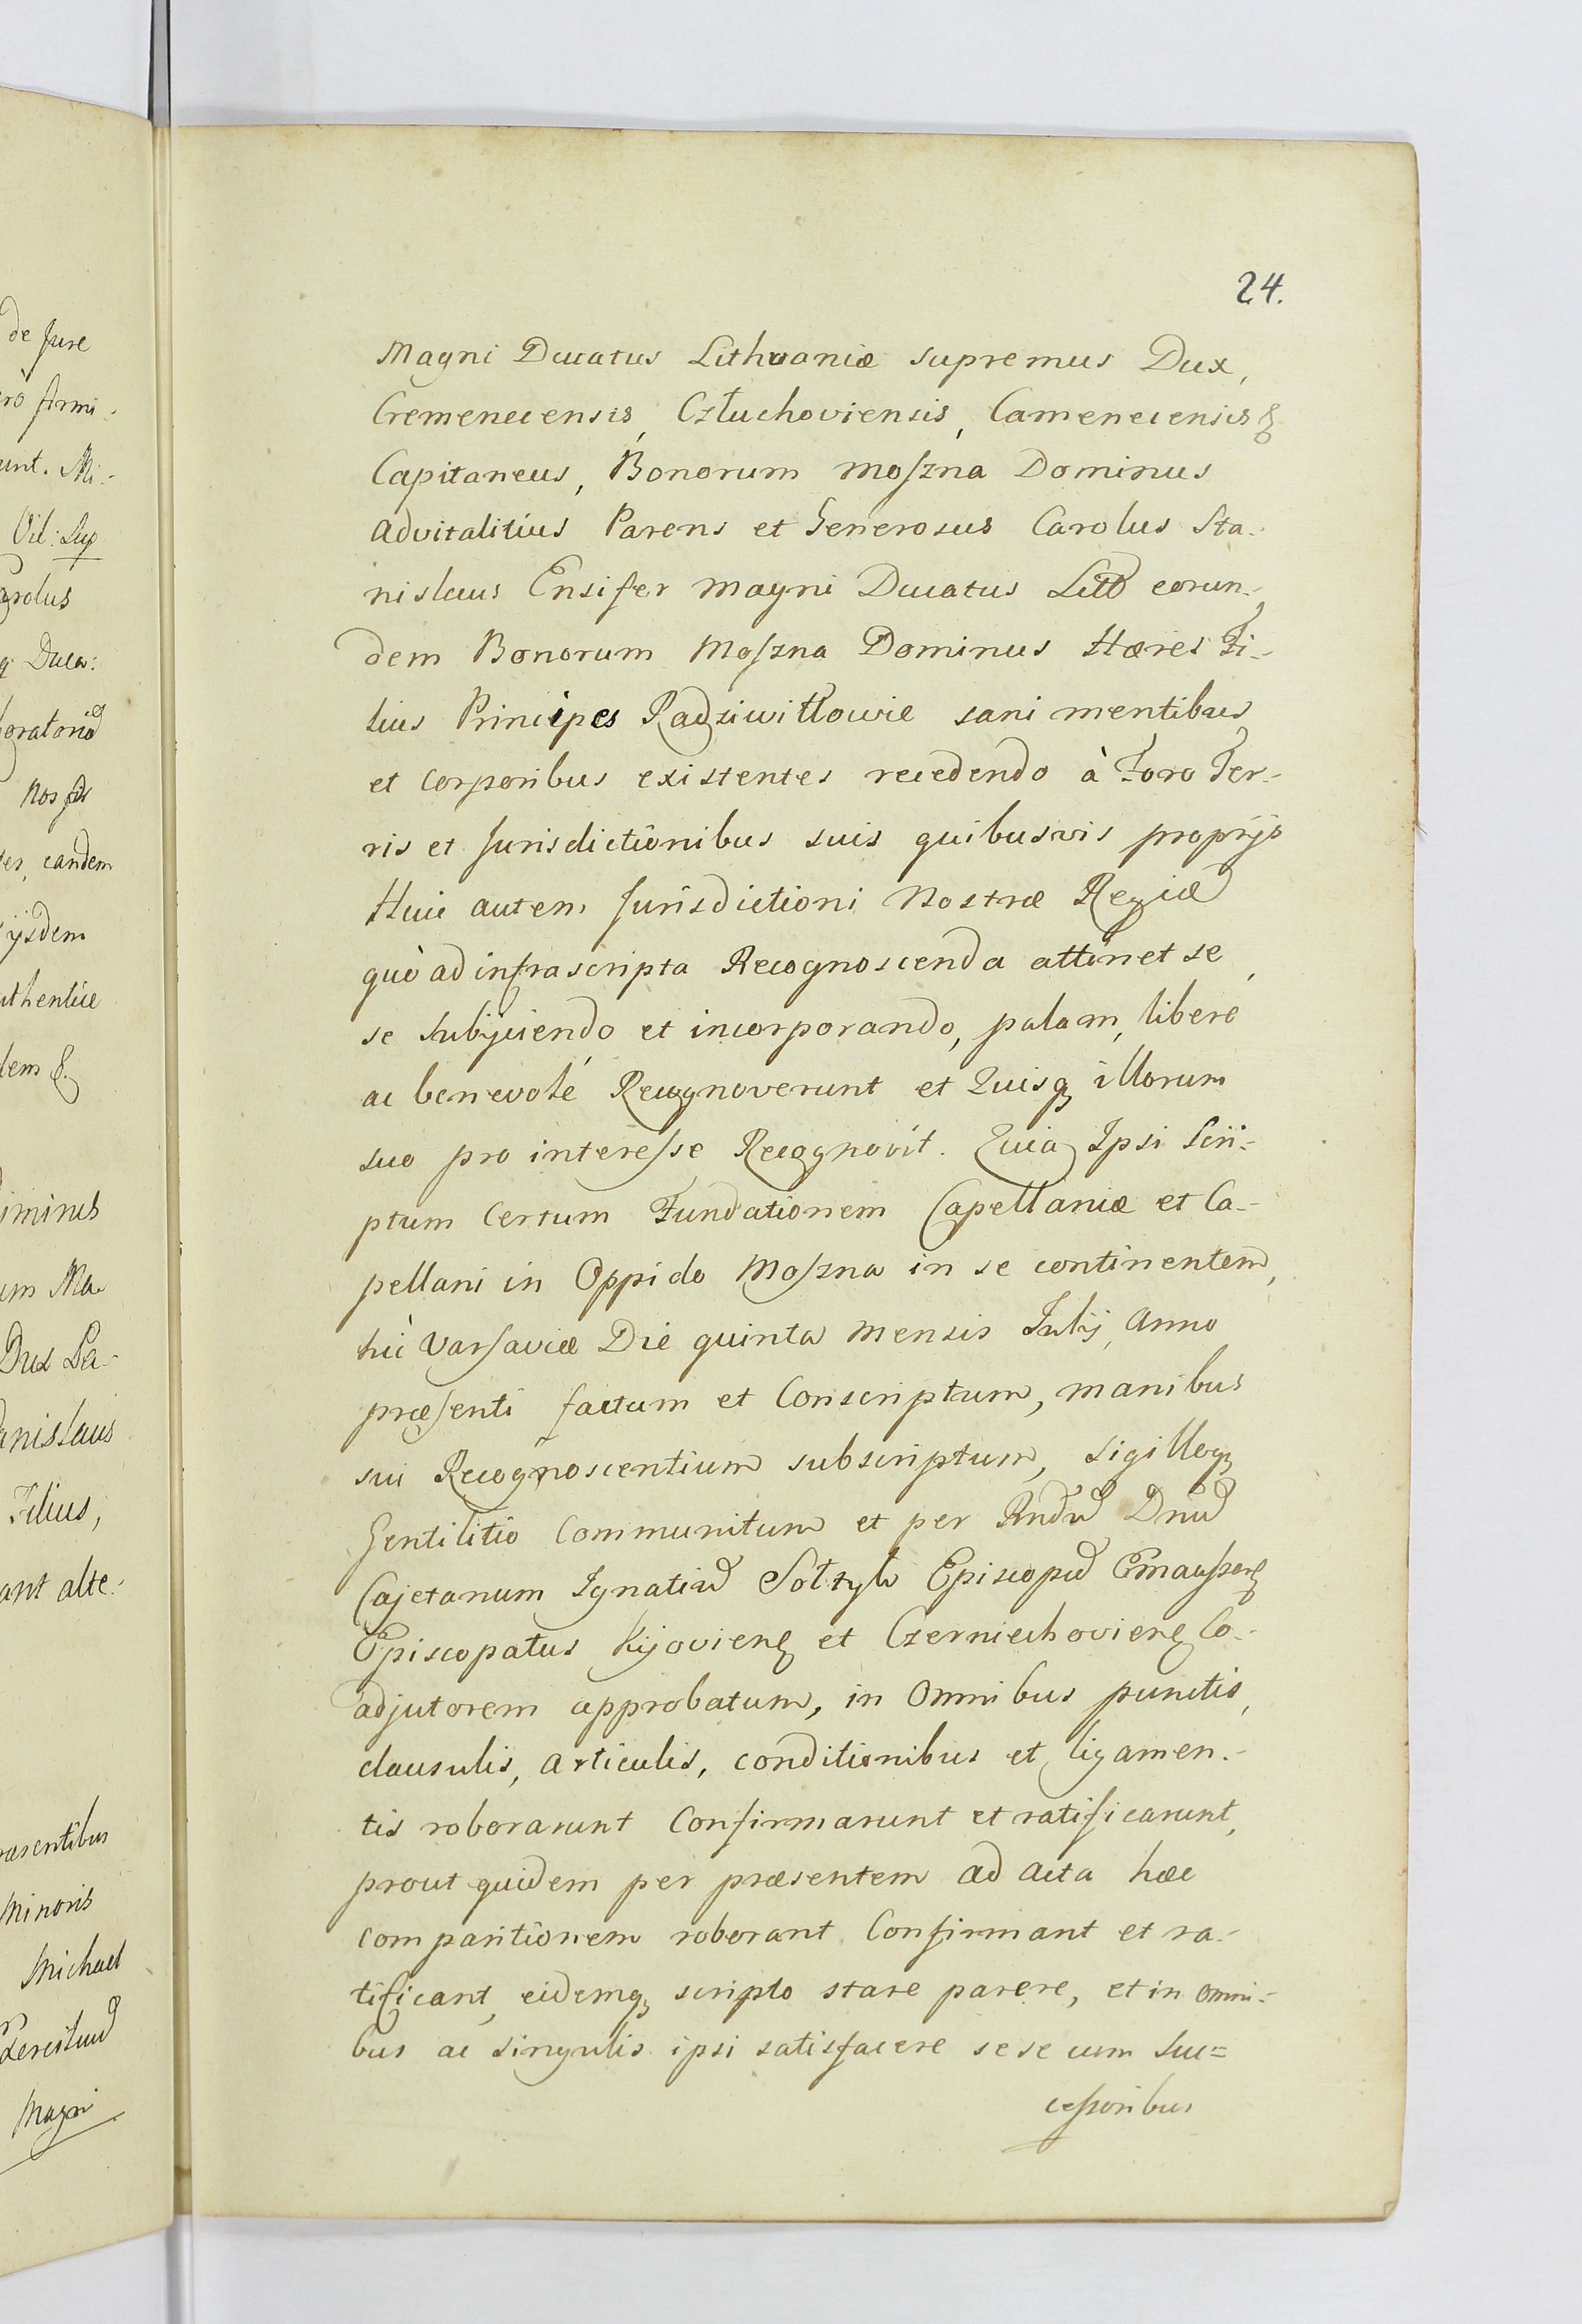 de Jure
rò firmi:
unt. Mi:
Vil: Sup
arolus
q Duca:
oratorio
Nos
er, eandem
ijsdem
uthentice
dem &
iminus
um Ma
Dux La-
anislaus
Filius,
ant alte:
ræsentibus
Minoris
Michael
xercituu
Magni
24.
Magni Ducatus Lithvaniæ supremus Dux,
Cremenecensis, Człuchoviensis, Camenecensis &
Capitaneus, Bonorum Moſzna Dominus
Advitalitius Parens et Generosus Carolus Sta-
nislaus Ensifer Magni Ducatus Litt eorun-
dem Bonorum Moſzna Dominus Hæres Fi-
lius Principes Radziwiłłowie sani mentibus
et Corporibus existentes recedendo à Foro Ter-
ris et Jurisdictionibus suis quibusvis proprijs
Huic autem Jurisdictioni Nostræ Regiæ
quò ad infrascripta Recognoscenda attinet se,
se subijciendo et incorporando, palam, libere
ac benevolé Recognoverunt et Quisq illorum
suo pro intereſse Recognovit. Quia Ipsi Scri-
ptum Certum Fundationem Capellaniæ et Ca-
pellani in Oppido Moſzna in se continentem,
hìc Varſaviæ Die quinta Mensis Julij, Anno
præſenti factum et Conscriptum, manibus
sui Recognoscentium subscriptum, sigilloq
Gentilitio Communitum et per Rndu Dnu
Cajetanum Ignatiu Sołtyk Episcopu Emauſsen
Episcopatus Kijovien et Czerniechovien Co-
adjutorem approbatum, in Omnibus punctis,
clausulis, Articulis, conditionibus et ligamen-
tis roborarunt Confirmarunt et ratificarunt,
prout quidem per præsentem ad acta hæc
comparitionem roborant Confirmant et ra-
tificant, eidemq scripto stare parere, et in omni-
bus ac singulis ipsi satisfacere sese cum suc=
ceſsoribus